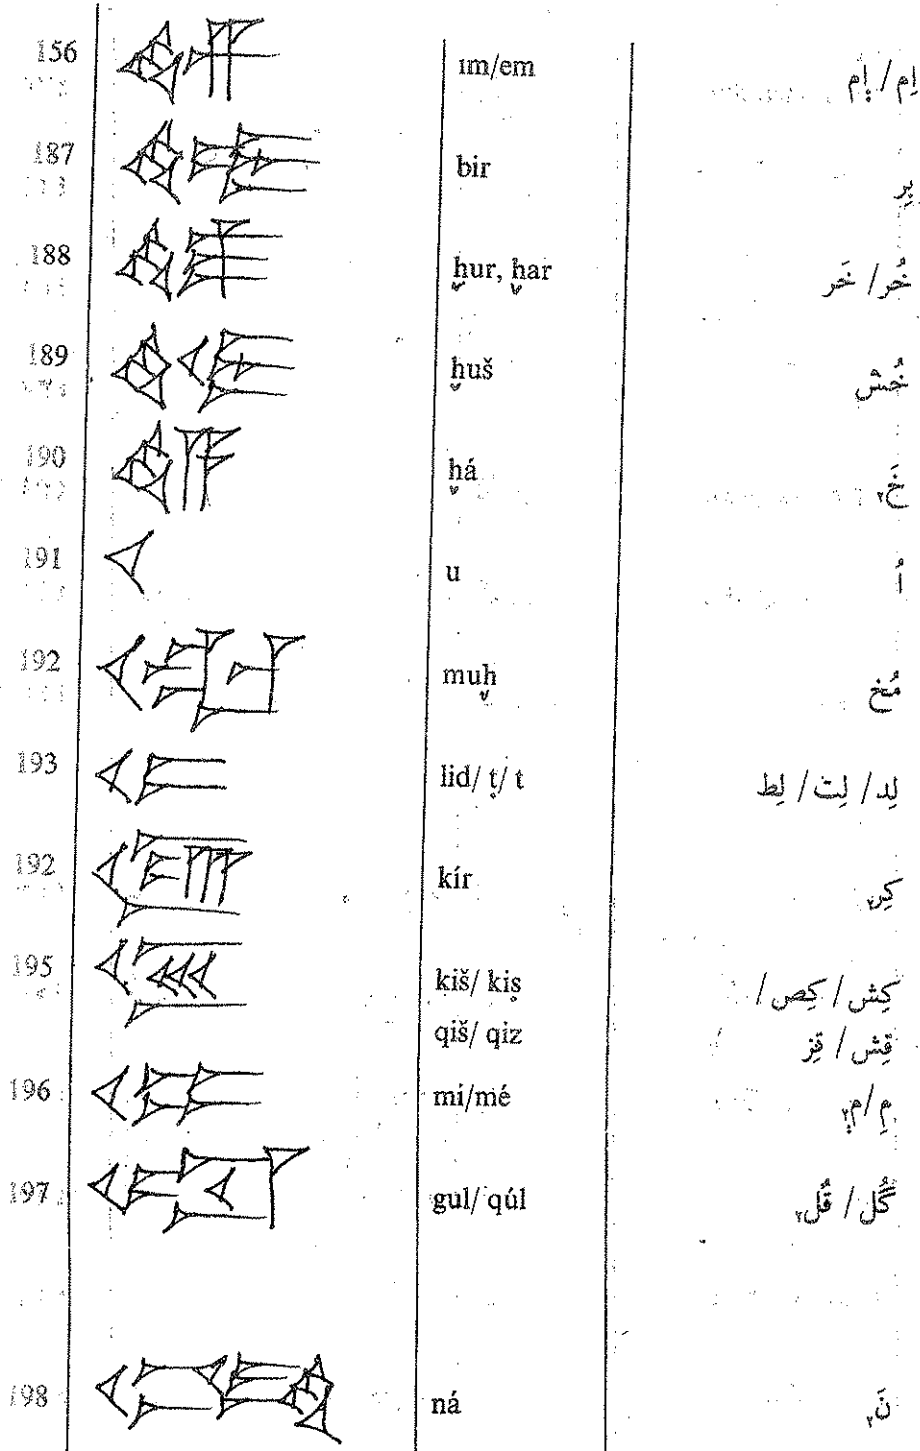 156 im/em اِم/إم
187 bir بِر
188 ḫur, ḫar خُر/ خَر
189 ḫuš خُش
190 ḫá خَ٢
191 u اُ
192 muḫ مُخ
193 lid/ ṭ/ t لِد/ لِت/ لِط
192 kír كِر٢
195 kiš/ kiṣ كِش/ كِص/
qiš/ qiz قِش/ قِز
196 mi/mé مِ/م٢
197 gul/ qúl گُل/ قُل٢
198 ná نَ٢